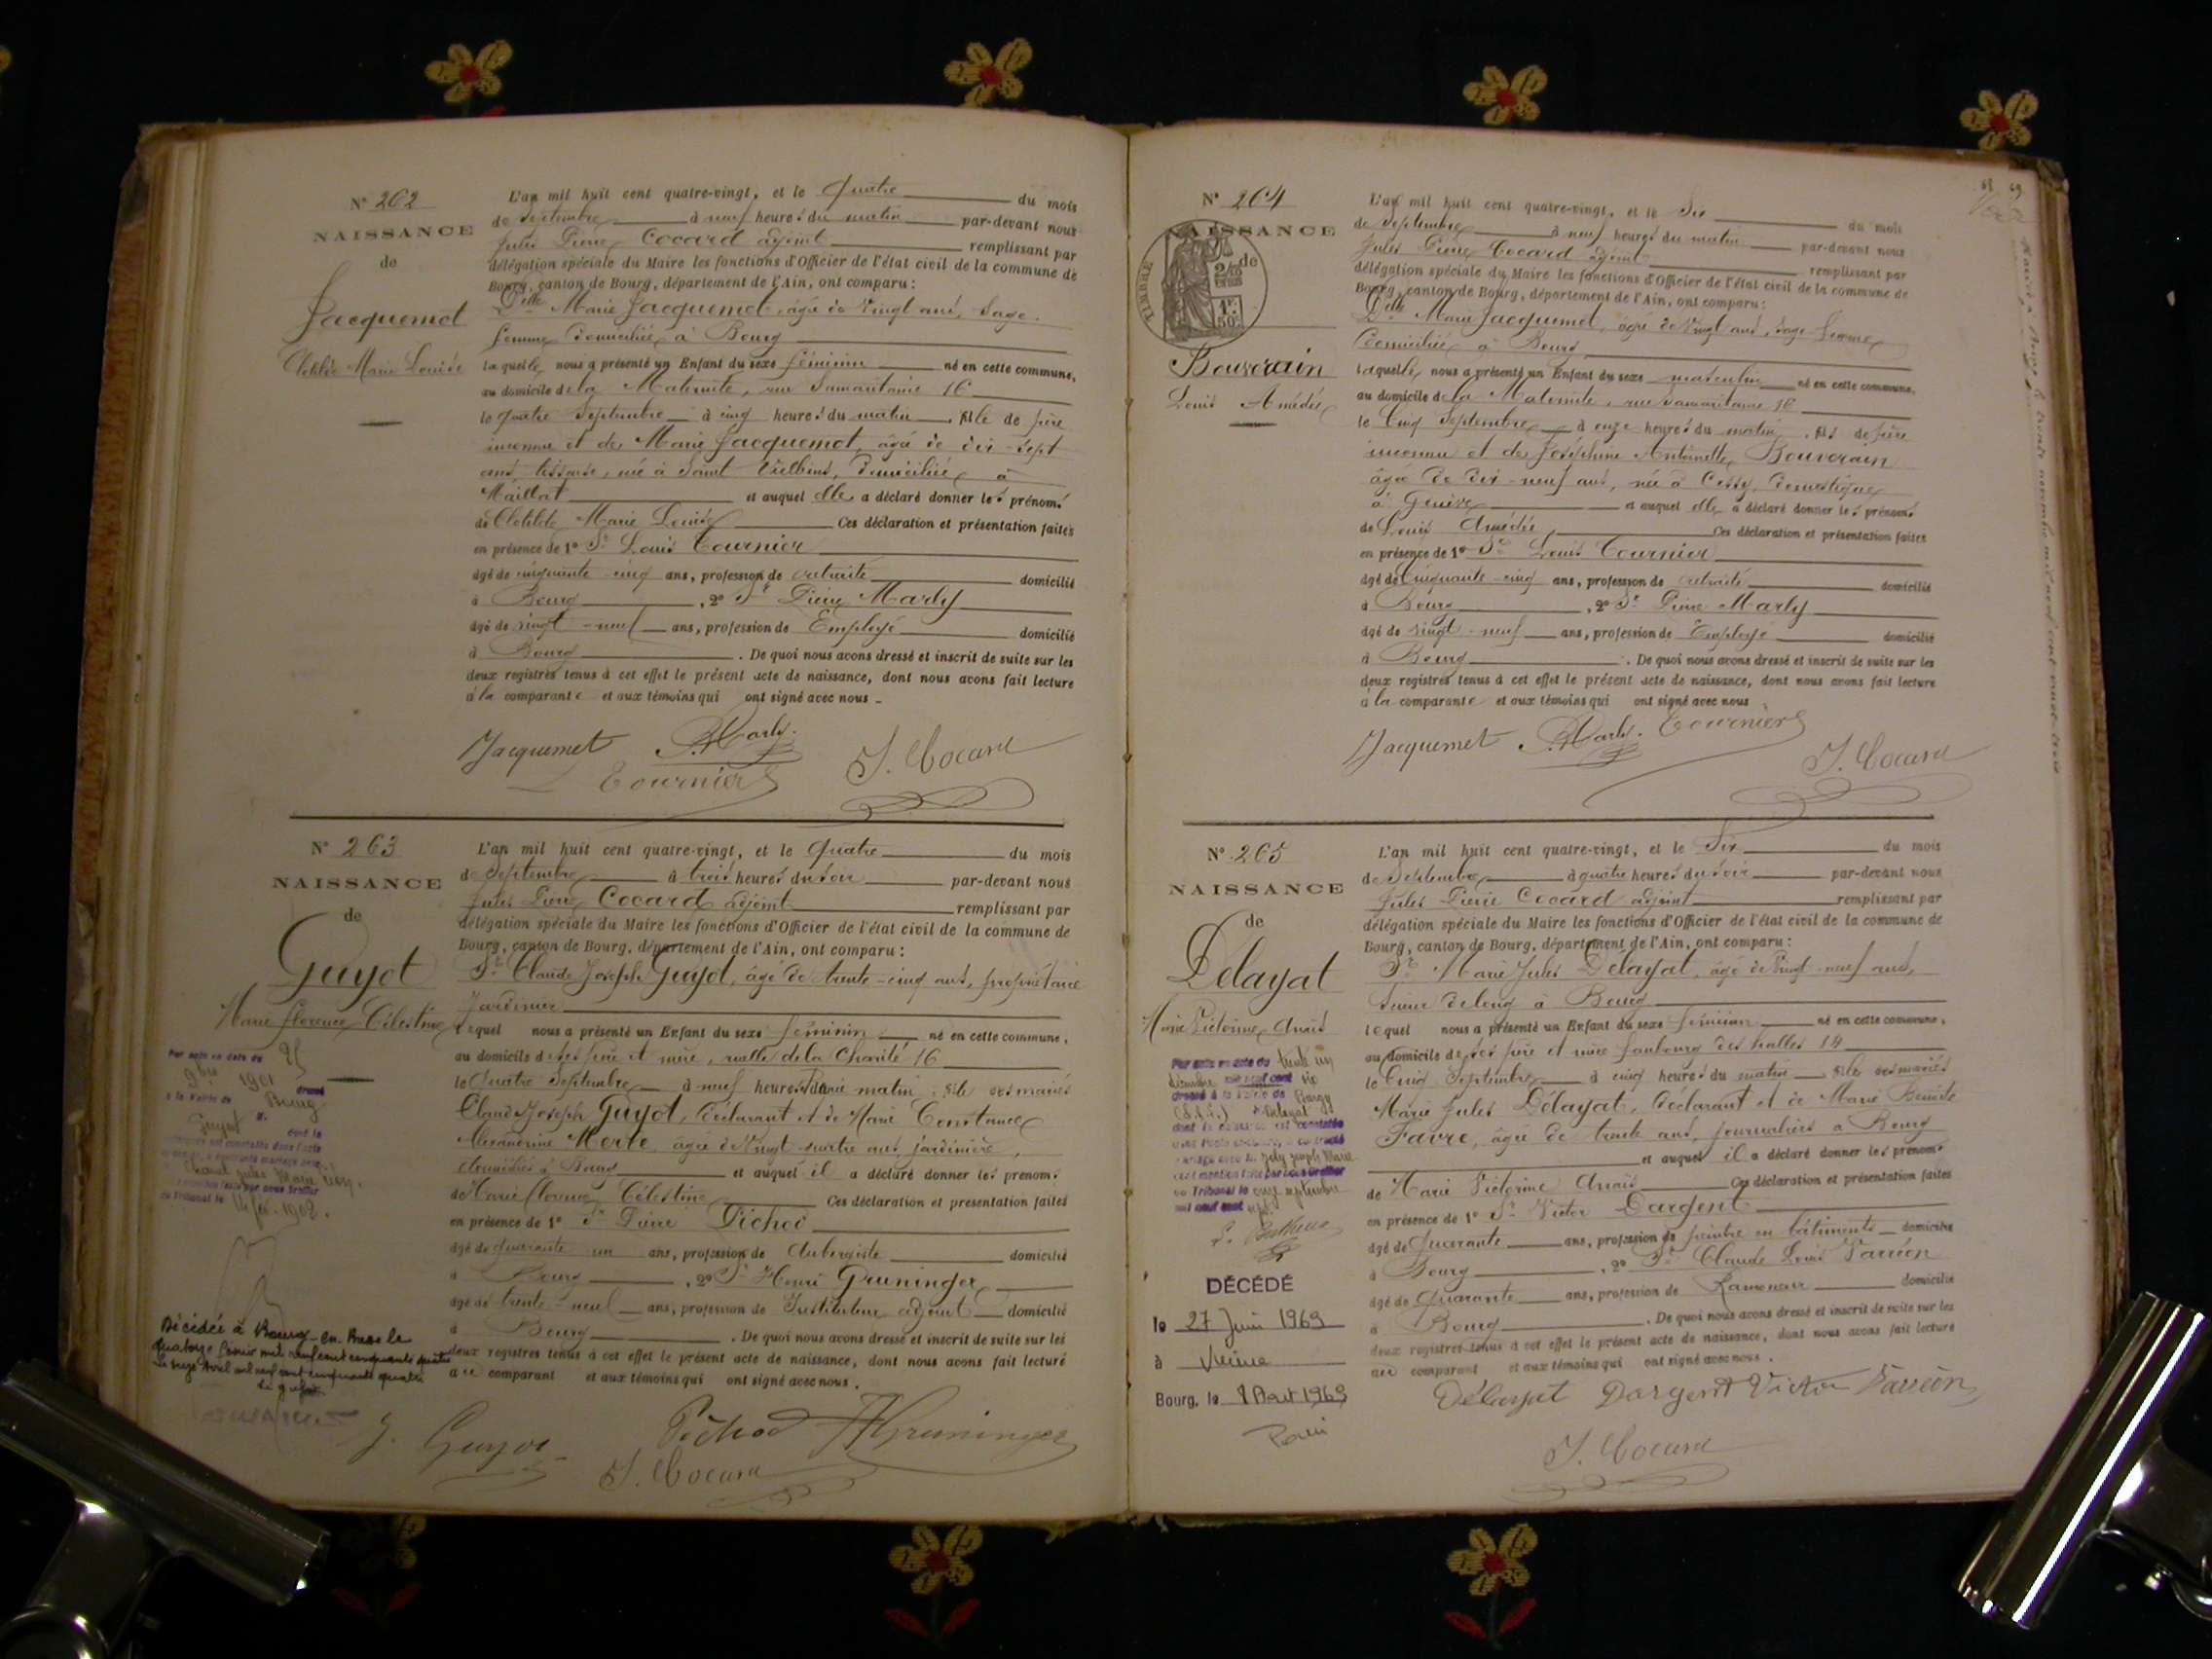 N° 262
NAISSANCE
de
Jacquemet
Clotilde Marie Louise
L'an mil huit cent quatre-vingt, et le quatre du mois
de Septembre à neuf heures du matin par-devant nous
Jules Pierre Cocard adjoint remplissant par
délégation spéciale du Maire les fonctions d'Officier de l'état civil de la commune de
Bourg, canton de Bourg, département de l'Ain, ont comparu :
Delle Marie Jacquemet, âgée de Vingt ans, Sage-
femme domiciliée à Bourg
laquelle nous a présenté un Enfant du sexe féminin né en cette commune,
au domicile de la Maternité, rue Samaritaine 16
le quatre Septembre à cinq heures du matin, fille de père
inconnu et de Marie Jacquemet, âgée de dix-sept
ans, tisseuse, née à Saint domiciliée à
Maillat et auquel elle a déclaré donner les prénoms
de Clotilde Marie Louise Ces déclaration et présentation faites
en présence de 1° Sr Louis Tournier
âgé de cinquante-cinq ans, profession de retraité domicilié
à Bourg, 2° Sr Pierre Marly
âgé de vingt-neuf ans, profession de Employé domicilié
à Bourg. De quoi nous avons dressé et inscrit de suite sur les
deux registres tenus à cet effet le présent acte de naissance, dont nous avons fait lecture
à la comparante et aux témoins qui ont signé avec nous
Jacquemet P. Marly.
Tournier J. Cocard
N° 263
NAISSANCE
de
Guyot
Marie Florence Célestine
Par acte en date du 25
9bre 1901 dressé
à la Mairie de Bourg
Guyot
dont la
14 fév. 1902.
Décédée à Bourg-en-Bresse le
quatorze février mil neuf cent cinquante quatre
Le seize Avril mil neuf cent cinquante quatre
Le greffier
L'an mil huit cent quatre-vingt, et le quatre du mois
de Septembre à trois heures du soir par-devant nous
Jules Pierre Cocard adjoint remplissant par
délégation spéciale du Maire les fonctions d'Officier de l'état civil de la commune de
Bourg, canton de Bourg, département de l'Ain, ont comparu :
Sr Claude Joseph Guyot, âgé de trente-cinq ans, propriétaire
Jardinier
lequel nous a présenté un Enfant du sexe féminin né en cette commune,
au domicile de ses père et mère, ruelle de la Charité 16
le Quatre Septembre à neuf heures du matin, fille des mariés
Claude Joseph Guyot, déclarant et de Marie Constance
Alexandrine Merle âgée de Vingt-quatre ans, jardinière,
domiciliés à Bourg et auquel il a déclaré donner les prénoms
de Marie Florence Célestine Ces déclaration et présentation faites
en présence de 1° Sr Pierre Pichod
âgé de quarante un ans, profession de Aubergiste domicilié
à Bourg, 2° Sr Henri Gruninger
âgé de trente-neuf ans, profession de Instituteur adjoint domicilié
à Bourg. De quoi nous avons dressé et inscrit de suite sur les
deux registres tenus à cet effet le présent acte de naissance, dont nous avons fait lecture
au comparant et aux témoins qui ont signé avec nous.
J. Guyot Pichod Gruninger
J. Cocard
N° 264
NAISSANCE
de
TIMBRE
2/10
1F.
50c
Bouverain
Louis Amédée
L'an mil huit cent quatre-vingt, et le Six du mois
de Septembre à neuf heures du matin par-devant nous
Jules Pierre Cocard adjoint remplissant par
délégation spéciale du Maire les fonctions d'Officier de l'état civil de la commune de
Bourg, canton de Bourg, département de l'Ain, ont comparu :
Delle Marie Jacquemet, âgée de Vingt ans, Sage femme
domiciliée à Bourg
laquelle nous a présenté un Enfant du sexe masculin né en cette commune,
au domicile de la Maternité, rue Samaritaine 16
le Cinq Septembre à onze heures du matin, fils de père
inconnu et de Joséphine Antoinette Bouverain
âgée de dix-neuf ans, née à Cessy, domestique
à Genève et auquel elle a déclaré donner les prénoms
de Louis Amédée Ces déclaration et présentation faites
en présence de 1° Sr Louis Tournier
âgé de cinquante-cinq ans, profession de retraité domicilié
à Bourg, 2° Sr Pierre Marly
âgé de vingt-neuf ans, profession de Employé domicilié
à Bourg. De quoi nous avons dressé et inscrit de suite sur les
deux registres tenus à cet effet le présent acte de naissance, dont nous avons fait lecture
à la comparante et aux témoins qui ont signé avec nous
Jacquemet P. Marly. Tournier
J. Cocard
N° 265
NAISSANCE
de
Delayat
Marie Victorine Anaïs
Par acte en date du trente un
décembre mil neuf cent six
dressé à la Mairie de Bourg
Delayat
dont la naissance est constatée
Joly Joseph Marie
du Tribunal le onze septembre
mil neuf cent sept
DÉCÉDÉ
le 27 Juin 1969
à
Bourg, le 1 Aout 1969
L'an mil huit cent quatre-vingt, et le Six du mois
de Septembre à quatre heures du soir par-devant nous
Jules Pierre Cocard adjoint remplissant par
délégation spéciale du Maire les fonctions d'Officier de l'état civil de la commune de
Bourg, canton de Bourg, département de l'Ain, ont comparu :
Sr Marie Jules Delayat, âgé de Vingt-neuf ans,
à Bourg
lequel nous a présenté un Enfant du sexe féminin né en cette commune,
au domicile de ses père et mère faubourg des halles 14
le Cinq Septembre à cinq heures du matin fille des mariés
Marie Jules Delayat, déclarant et de Marie Benoite
Favre, âgée de trente ans, journalière à Bourg
et auquel il a déclaré donner les prénoms
de Marie Victorine Anaïs Ces déclaration et présentation faites
en présence de 1° Sr Victor Dargent
âgé de Quarante ans, profession de peintre en bâtiments domicilié
à Bourg, 2° Sr Claude Louis
âgé de Quarante ans, profession de Ramoneur domicilié
à Bourg. De quoi nous avons dressé et inscrit de suite sur les
deux registres tenus à cet effet le présent acte de naissance, dont nous avons fait lecture
au comparant et aux témoins qui ont signé avec nous.
Délayat Dargent Victor
J. Cocard